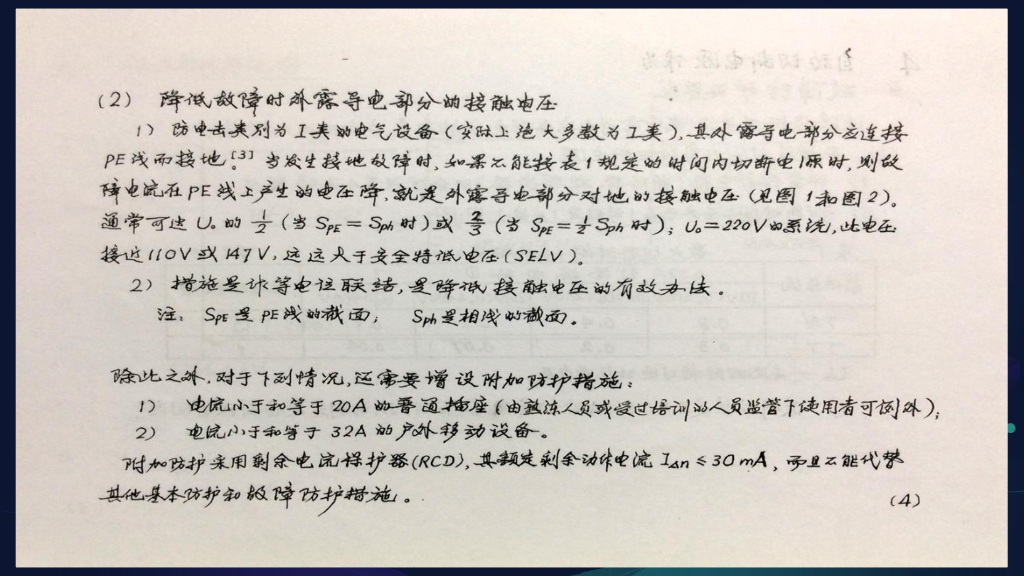 (2) 降低故障时外露导电部分的接触电压
1) 防电击类别为I类的电气设备(实际上绝大多数为I类),其外露导电部分应连接
PE线而接地。[3] 当发生接地故障时,如果不能按表1规定的时间内切断电源时,则故
障电流在PE线上产生的电压降,就是外露导电部分对地的接触电压(见图1和图2)。
通常可达U₀的1/2(当SPE=Sph时)或2/3(当SPE=1/2Sph时);U₀=220V的系统,此电压
接近110V或147V,远远大于安全特低电压(SELV)。
2) 措施是作等电位联结,是降低接触电压的有效办法。
注: SPE是PE线的截面; Sph是相线的截面。
除此之外,对于下列情况,还需要增设附加防护措施:
1) 电流小于和等于20A的普通插座(由熟练人员或受过培训的人员监管下使用者可例外);
2) 电流小于和等于32A的户外移动设备。
附加防护采用剩余电流保护器(RCD),其额定剩余动作电流IΔn≤30mA,而且不能代替
其他基本防护和故障防护措施。
(4)